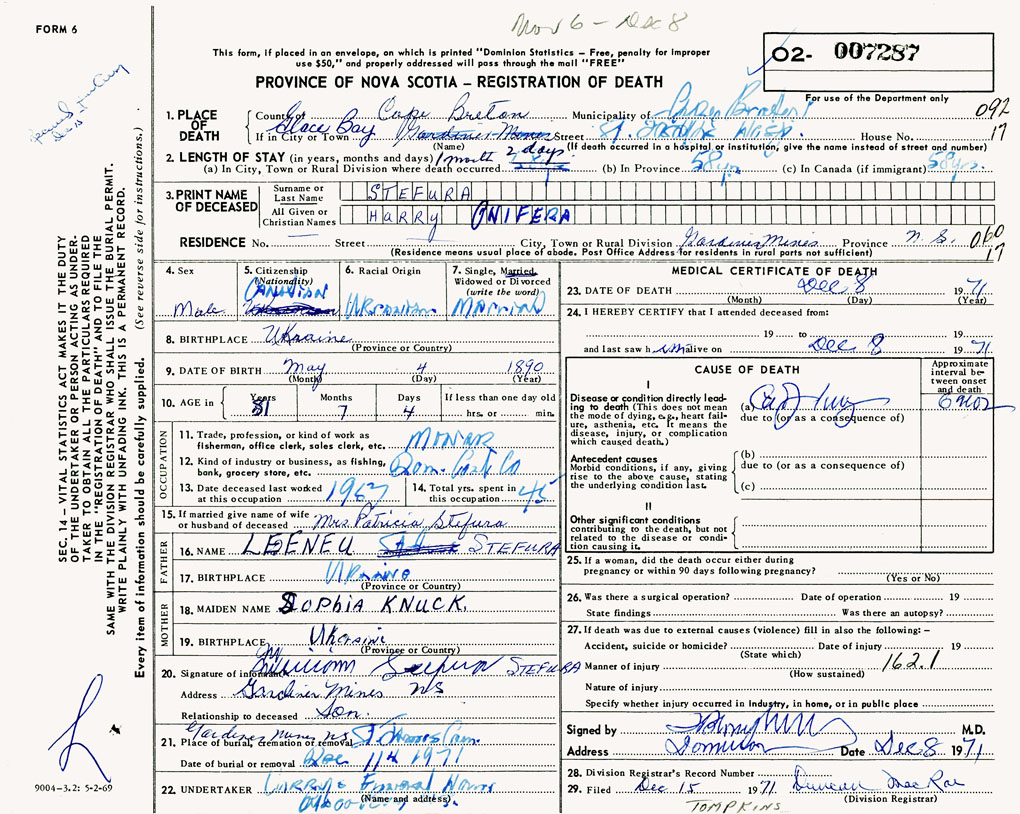 FORM 6
Nov 6 - Dec 8
This form, if placed in an envelope, on which is printed "Dominion Statistics – Free, penalty for improper
use $50," and properly addressed will pass through the mail "FREE"
PROVINCE OF NOVA SCOTIA – REGISTRATION OF DEATH
02- 007287
For use of the Department only
1. PLACE OF DEATH
County of Cape Breton Municipality of
092
If in City or Town Glace Bay Street St. House No.
17
(Name) (If death occurred in a hospital or institution, give the name instead of street and number)
2. LENGTH OF STAY (in years, months and days) 1 month 2 days
(a) In City, Town or Rural Division where death occurred (b) In Province 58 yrs. (c) In Canada (if immigrant) 58 yrs.
3. PRINT NAME OF DECEASED
Surname or Last Name STEFURA
All Given or Christian Names HARRY ONIFERA
RESIDENCE No. Street City, Town or Rural Division Gardiner Mines Province N.S.
060
17
(Residence means usual place of abode. Post Office Address for residents in rural parts not sufficient)
4. Sex
Male
5. Citizenship (Nationality)
CANADIAN
6. Racial Origin
Ukranian
7. Single, Married, Widowed or Divorced (write the word)
MARRIED
8. BIRTHPLACE Ukraine
(Province or Country)
9. DATE OF BIRTH May 4 1890
(Month) (Day) (Year)
10. AGE in Years Months Days If less than one day
81 7 4 hrs. or min.
OCCUPATION
11. Trade, profession, or kind of work as fisherman, office clerk, sales clerk, etc.
12. Kind of industry or business, as fishing, bank, grocery store, etc. Dom. Coal Co
13. Date deceased last worked at this occupation
14. Total yrs. spent in this occupation 45
15. If married give name of wife or husband of deceased Mrs. Patricia Stefura
FATHER
16. NAME LEENEU STEFURA
17. BIRTHPLACE Ukraine
(Province or Country)
MOTHER
18. MAIDEN NAME SOPHIA KNUCK
19. BIRTHPLACE Ukraine
(Province or Country)
20. Signature of informant STEFURA
Address Gardiner Mines NS
Relationship to deceased Son.
Gardiner Mines NS
21. Place of burial, cremation or removal
Date of burial or removal Dec 11th 1971
22. UNDERTAKER Funeral Home
(Name and address)
MEDICAL CERTIFICATE OF DEATH
23. DATE OF DEATH Dec 8 1971
(Month) (Day) (Year)
24. I HEREBY CERTIFY that I attended deceased from:
19 to 19
and last saw him alive on Dec 8 1971
CAUSE OF DEATH
Approximate interval between onset and death
I
Disease or condition directly leading to death (This does not mean the mode of dying, e.g., heart failure, asthenia, etc. It means the disease, injury, or complication which caused death.)
(a) Ca of lung
due to (or as a consequence of)
Antecedent causes
Morbid conditions, if any, giving rise to the above cause, stating the underlying condition last.
(b)
due to (or as a consequence of)
(c)
II
Other significant conditions
contributing to the death, but not related to the disease or condition causing it.
25. If a woman, did the death occur either during pregnancy or within 90 days following pregnancy?
(Yes or No)
26. Was there a surgical operation? Date of operation 19
State findings Was there an autopsy?
27. If death was due to external causes (violence) fill in also the following: –
Accident, suicide or homicide? Date of injury 19
(State which)
162.1
Manner of injury
(How sustained)
Nature of injury
Specify whether injury occurred in Industry, in home, or in public place
Signed by M.D.
Address Dominion Date Dec 8 1971
28. Division Registrar's Record Number
29. Filed Dec 15 1971 Duncan MacRae
(Division Registrar)
TOMPKINS
SEC. 14 – VITAL STATISTICS ACT MAKES IT THE DUTY
OF THE UNDERTAKER OR PERSON ACTING AS UNDERTAKER TO OBTAIN ALL THE PARTICULARS REQUIRED
IN THE "REGISTRATION OF DEATH" AND TO FILE THE
SAME WITH THE DIVISION REGISTRAR WHO SHALL ISSUE THE BURIAL PERMIT.
WRITE PLAINLY WITH UNFADING INK. THIS IS A PERMANENT RECORD.
Every item of information should be carefully supplied. (See reverse side for instructions.)
9004-3.2: 5-2-69